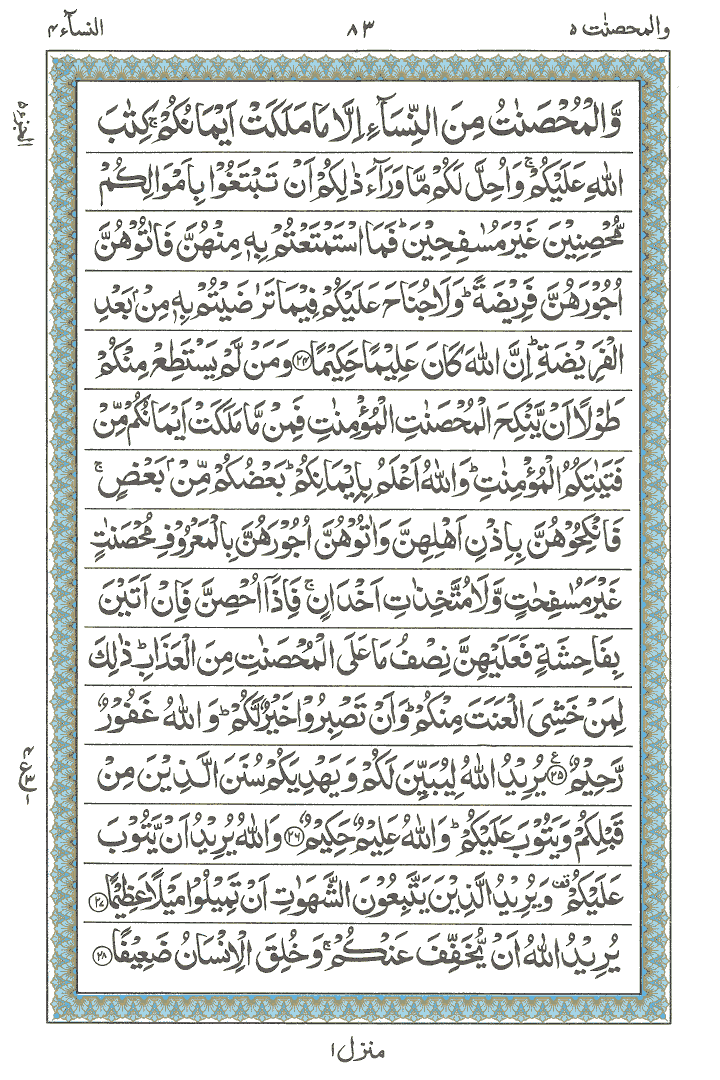 والمحصنٰت ٥ ٨٣ النسآء ٤
الجزء ٥
وَّالْمُحْصَنٰتُ مِنَ النِّسَآءِ اِلَّا مَا مَلَكَتْ اَيْمَانُكُمْ ۚ كِتٰبَ
اللّٰهِ عَلَيْكُمْ ۚ وَاُحِلَّ لَكُمْ مَّا وَرَآءَ ذٰلِكُمْ اَنْ تَبْتَغُوْا بِاَمْوَالِكُمْ
مُّحْصِنِيْنَ غَيْرَ مُسٰفِحِيْنَ ؕ فَمَا اسْتَمْتَعْتُمْ بِهٖ مِنْهُنَّ فَاٰتُوْهُنَّ
اُجُوْرَهُنَّ فَرِيْضَةً ؕ وَلَا جُنَاحَ عَلَيْكُمْ فِيْمَا تَرٰضَيْتُمْ بِهٖ مِنْۢ بَعْدِ
الْفَرِيْضَةِ ؕ اِنَّ اللّٰهَ كَانَ عَلِيْمًا حَكِيْمًا ﴿٢٤﴾ وَمَنْ لَّمْ يَسْتَطِعْ مِنْكُمْ
طَوْلًا اَنْ يَّنْكِحَ الْمُحْصَنٰتِ الْمُؤْمِنٰتِ فَمِنْ مَّا مَلَكَتْ اَيْمَانُكُمْ مِّنْ
فَتَيٰتِكُمُ الْمُؤْمِنٰتِ ؕ وَاللّٰهُ اَعْلَمُ بِاِيْمَانِكُمْ ؕ بَعْضُكُمْ مِّنْۢ بَعْضٍ ۚ
فَانْكِحُوْهُنَّ بِاِذْنِ اَهْلِهِنَّ وَاٰتُوْهُنَّ اُجُوْرَهُنَّ بِالْمَعْرُوْفِ مُحْصَنٰتٍ
غَيْرَ مُسٰفِحٰتٍ وَّلَا مُتَّخِذٰتِ اَخْدَانٍ ۚ فَاِذَا اُحْصِنَّ فَاِنْ اَتَيْنَ
بِفَاحِشَةٍ فَعَلَيْهِنَّ نِصْفُ مَا عَلَى الْمُحْصَنٰتِ مِنَ الْعَذَابِ ؕ ذٰلِكَ
لِمَنْ خَشِيَ الْعَنَتَ مِنْكُمْ ؕ وَاَنْ تَصْبِرُوْا خَيْرٌ لَّكُمْ ؕ وَاللّٰهُ غَفُوْرٌ
رَّحِيْمٌ ﴿٢٥﴾ يُرِيْدُ اللّٰهُ لِيُبَيِّنَ لَكُمْ وَيَهْدِيَكُمْ سُنَنَ الَّذِيْنَ مِنْ
قَبْلِكُمْ وَيَتُوْبَ عَلَيْكُمْ ؕ وَاللّٰهُ عَلِيْمٌ حَكِيْمٌ ﴿٢٦﴾ وَاللّٰهُ يُرِيْدُ اَنْ يَّتُوْبَ
عَلَيْكُمْ وَيُرِيْدُ الَّذِيْنَ يَتَّبِعُوْنَ الشَّهَوٰتِ اَنْ تَمِيْلُوْا مَيْلًا عَظِيْمًا ﴿٢٧﴾
يُرِيْدُ اللّٰهُ اَنْ يُّخَفِّفَ عَنْكُمْ ۚ وَخُلِقَ الْاِنْسَانُ ضَعِيْفًا ﴿٢٨﴾
منزل ١